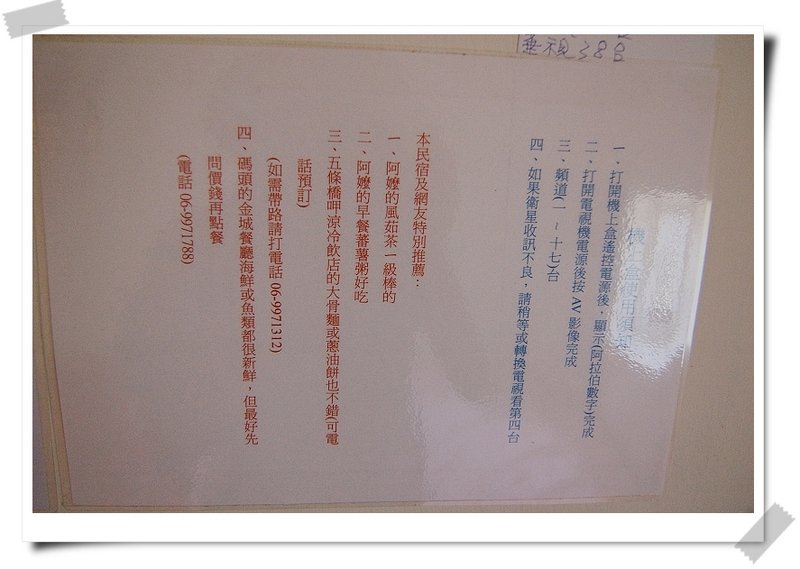 無視38台
機上盒使用須知
一、打開機上盒遙控電源後，顯示(阿拉伯數字)完成
二、打開電視機電源後按 AV 影像完成
三、頻道(一 ~ 十七)台
四、如果衛星收訊不良，請稍等或轉換電視看第四台
本民宿及網友特別推薦：
一、阿嬤的風茹茶一級棒的
二、阿嬤的早餐蕃薯粥好吃
三、五條橋呷涼冷飲店的大骨麵或蔥油餅也不錯(可電
話預訂)
(如需帶路請打電話 06-9971312)
四、碼頭的金城餐廳海鮮或魚類都很新鮮，但最好先
問價錢再點餐
(電話 06-9971788)